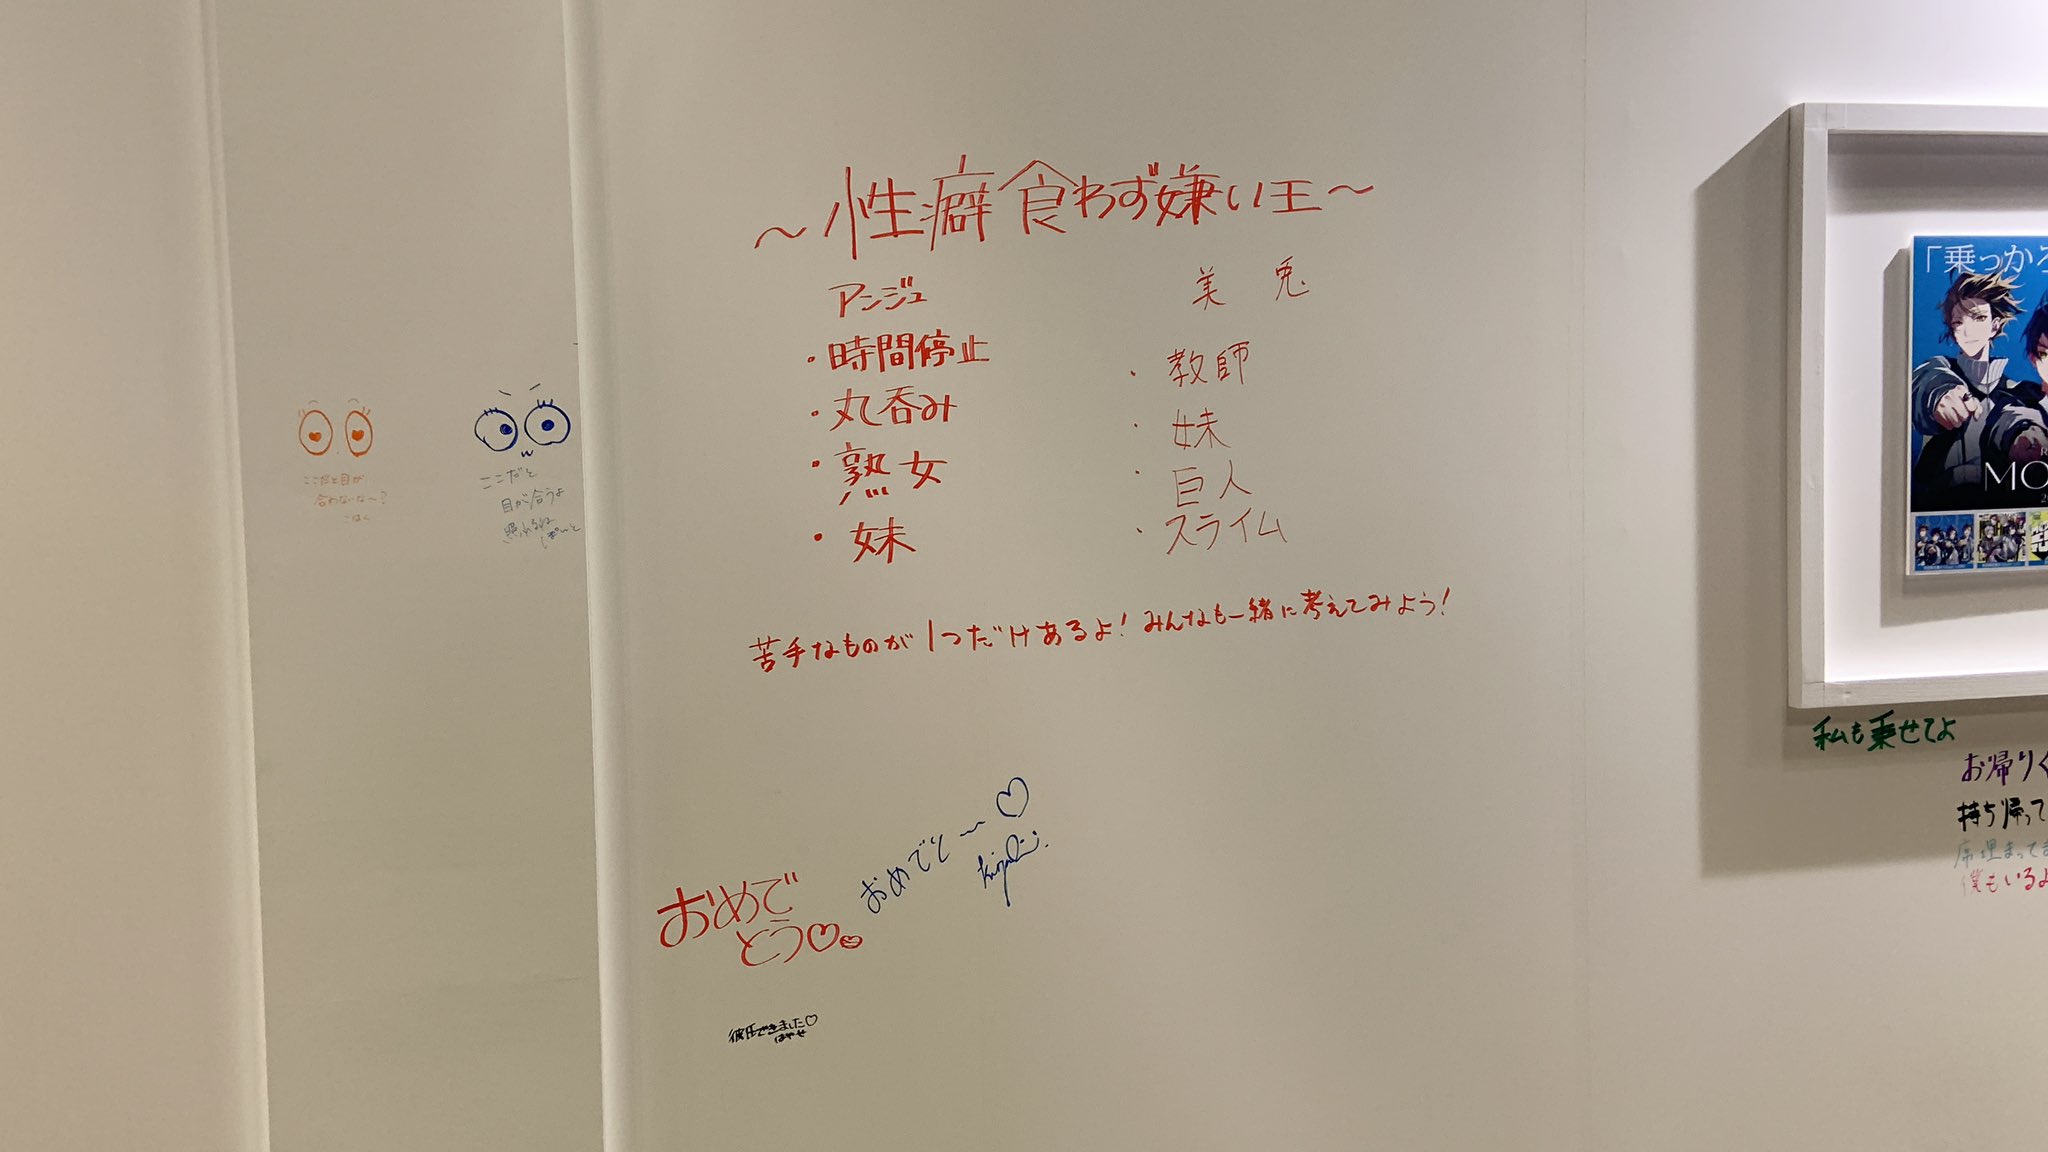 ～性癖食わず嫌い王～
アンジュ
・時間停止
・丸呑み
・熟女
・妹
美兎
・教師
・妹
・巨人
・スライム
苦手なものが1つだけあるよ！みんなも一緒に考えてみよう！
ここだと目が
合わないな～？
こはく
ここだと
目が合うよ
照れるね
おめで
とう♡
おめでと～♡
彼氏できました♡
はやせ
「乗っかろ
MO
私も乗せてよ
お帰りく
持ち帰って
席埋まってま
僕もいるよ